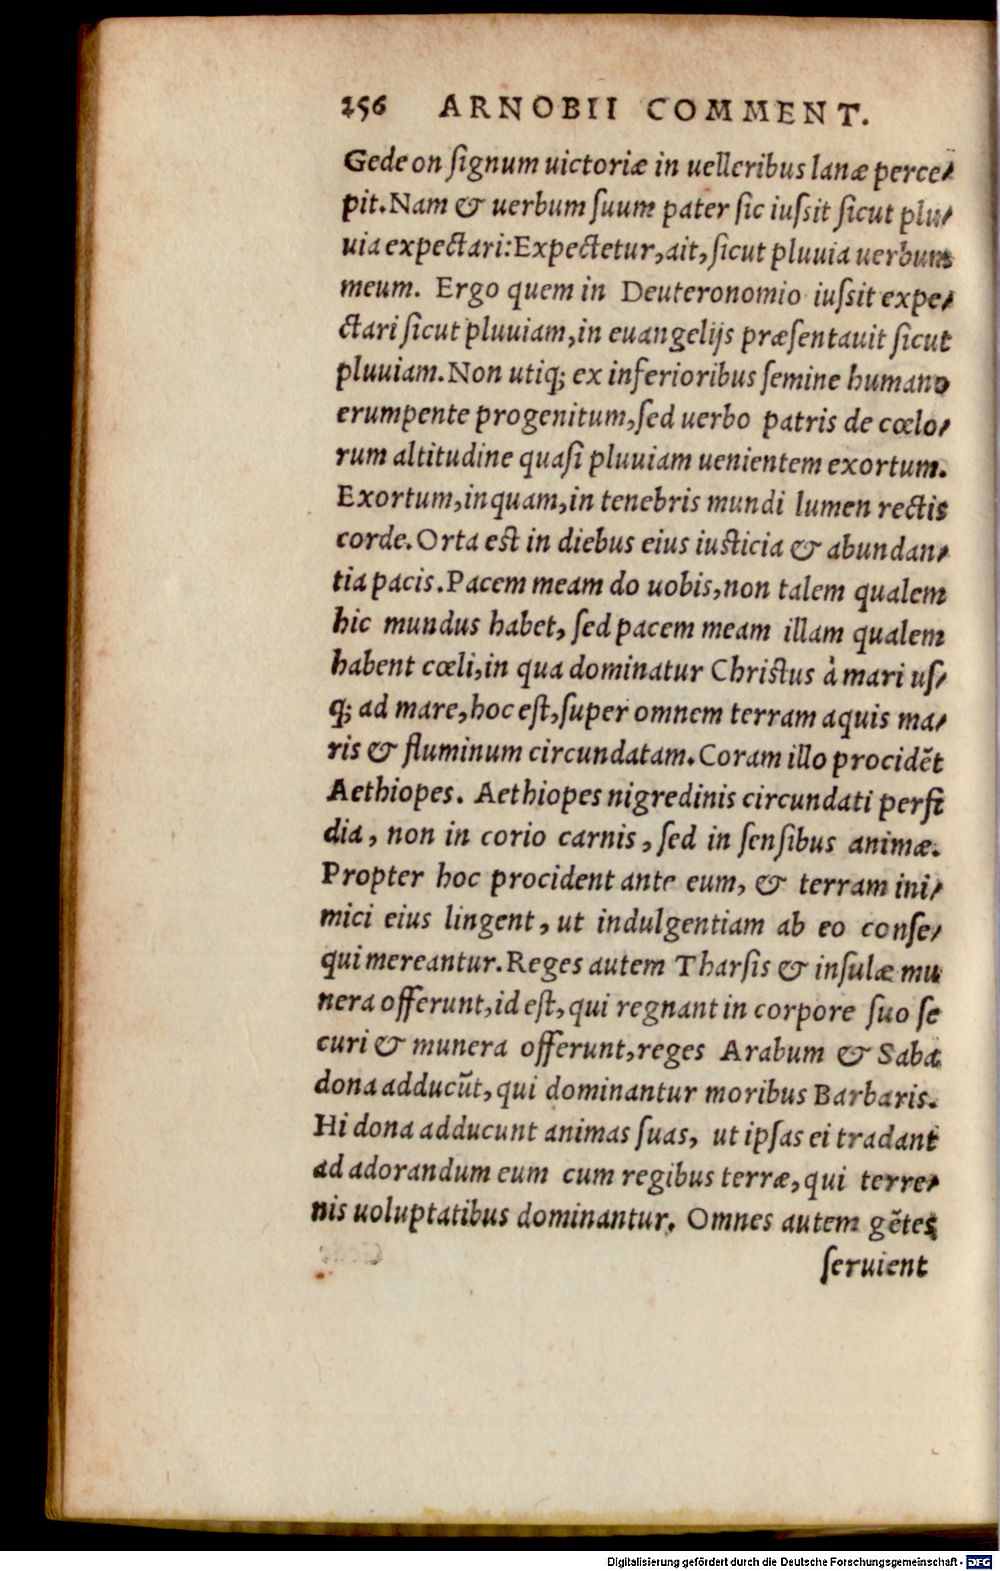 256 ARNOBII COMMENT.
Gedeon ſignum uictoriæ in uelleribus lanæ perce⸗
pit. Nam & uerbum ſuum pater ſic iuſsit ſicut plu⸗
uia expectari: Expectetur, ait, ſicut pluuia uerbum
meum. Ergo quem in Deuteronomio iuſsit expe⸗
ctari ſicut pluuiam, in euangelijs præſentauit ſicut
pluuiam. Non utiq; ex inferioribus ſemine humano
erumpente progenitum, ſed uerbo patris de cœlo⸗
rum altitudine quaſi pluuiam uenientem exortum.
Exortum, inquam, in tenebris mundi lumen rectis
corde. Orta est in diebus eius iusticia & abundan⸗
tia pacis. Pacem meam do uobis, non talem qualem
hic mundus habet, ſed pacem meam illam qualem
habent cœli, in qua dominatur Christus à mari uſ⸗
q; ad mare, hoc eſt, ſuper omnem terram aquis ma⸗
ris & fluminum circundatam. Coram illo procidẽt
Aethiopes. Aethiopes nigredinis circundati perfi
dia, non in corio carnis, ſed in ſenſibus animæ.
Propter hoc procident ante eum, & terram ini⸗
mici eius lingent, ut indulgentiam ab eo conſe⸗
qui mereantur. Reges autem Tharſis & inſulæ mu
nera offerunt, id eſt, qui regnant in corpore ſuo ſe
curi & munera offerunt, reges Arabum & Saba
dona adducũt, qui dominantur moribus Barbaris.
Hi dona adducunt animas ſuas, ut ipſas ei tradant
ad adorandum eum cum regibus terræ, qui terre⸗
nis uoluptatibus dominantur. Omnes autem gẽtes
ſeruient
Digitalisierung gefördert durch die Deutsche Forschungsgemeinschaft - DFG